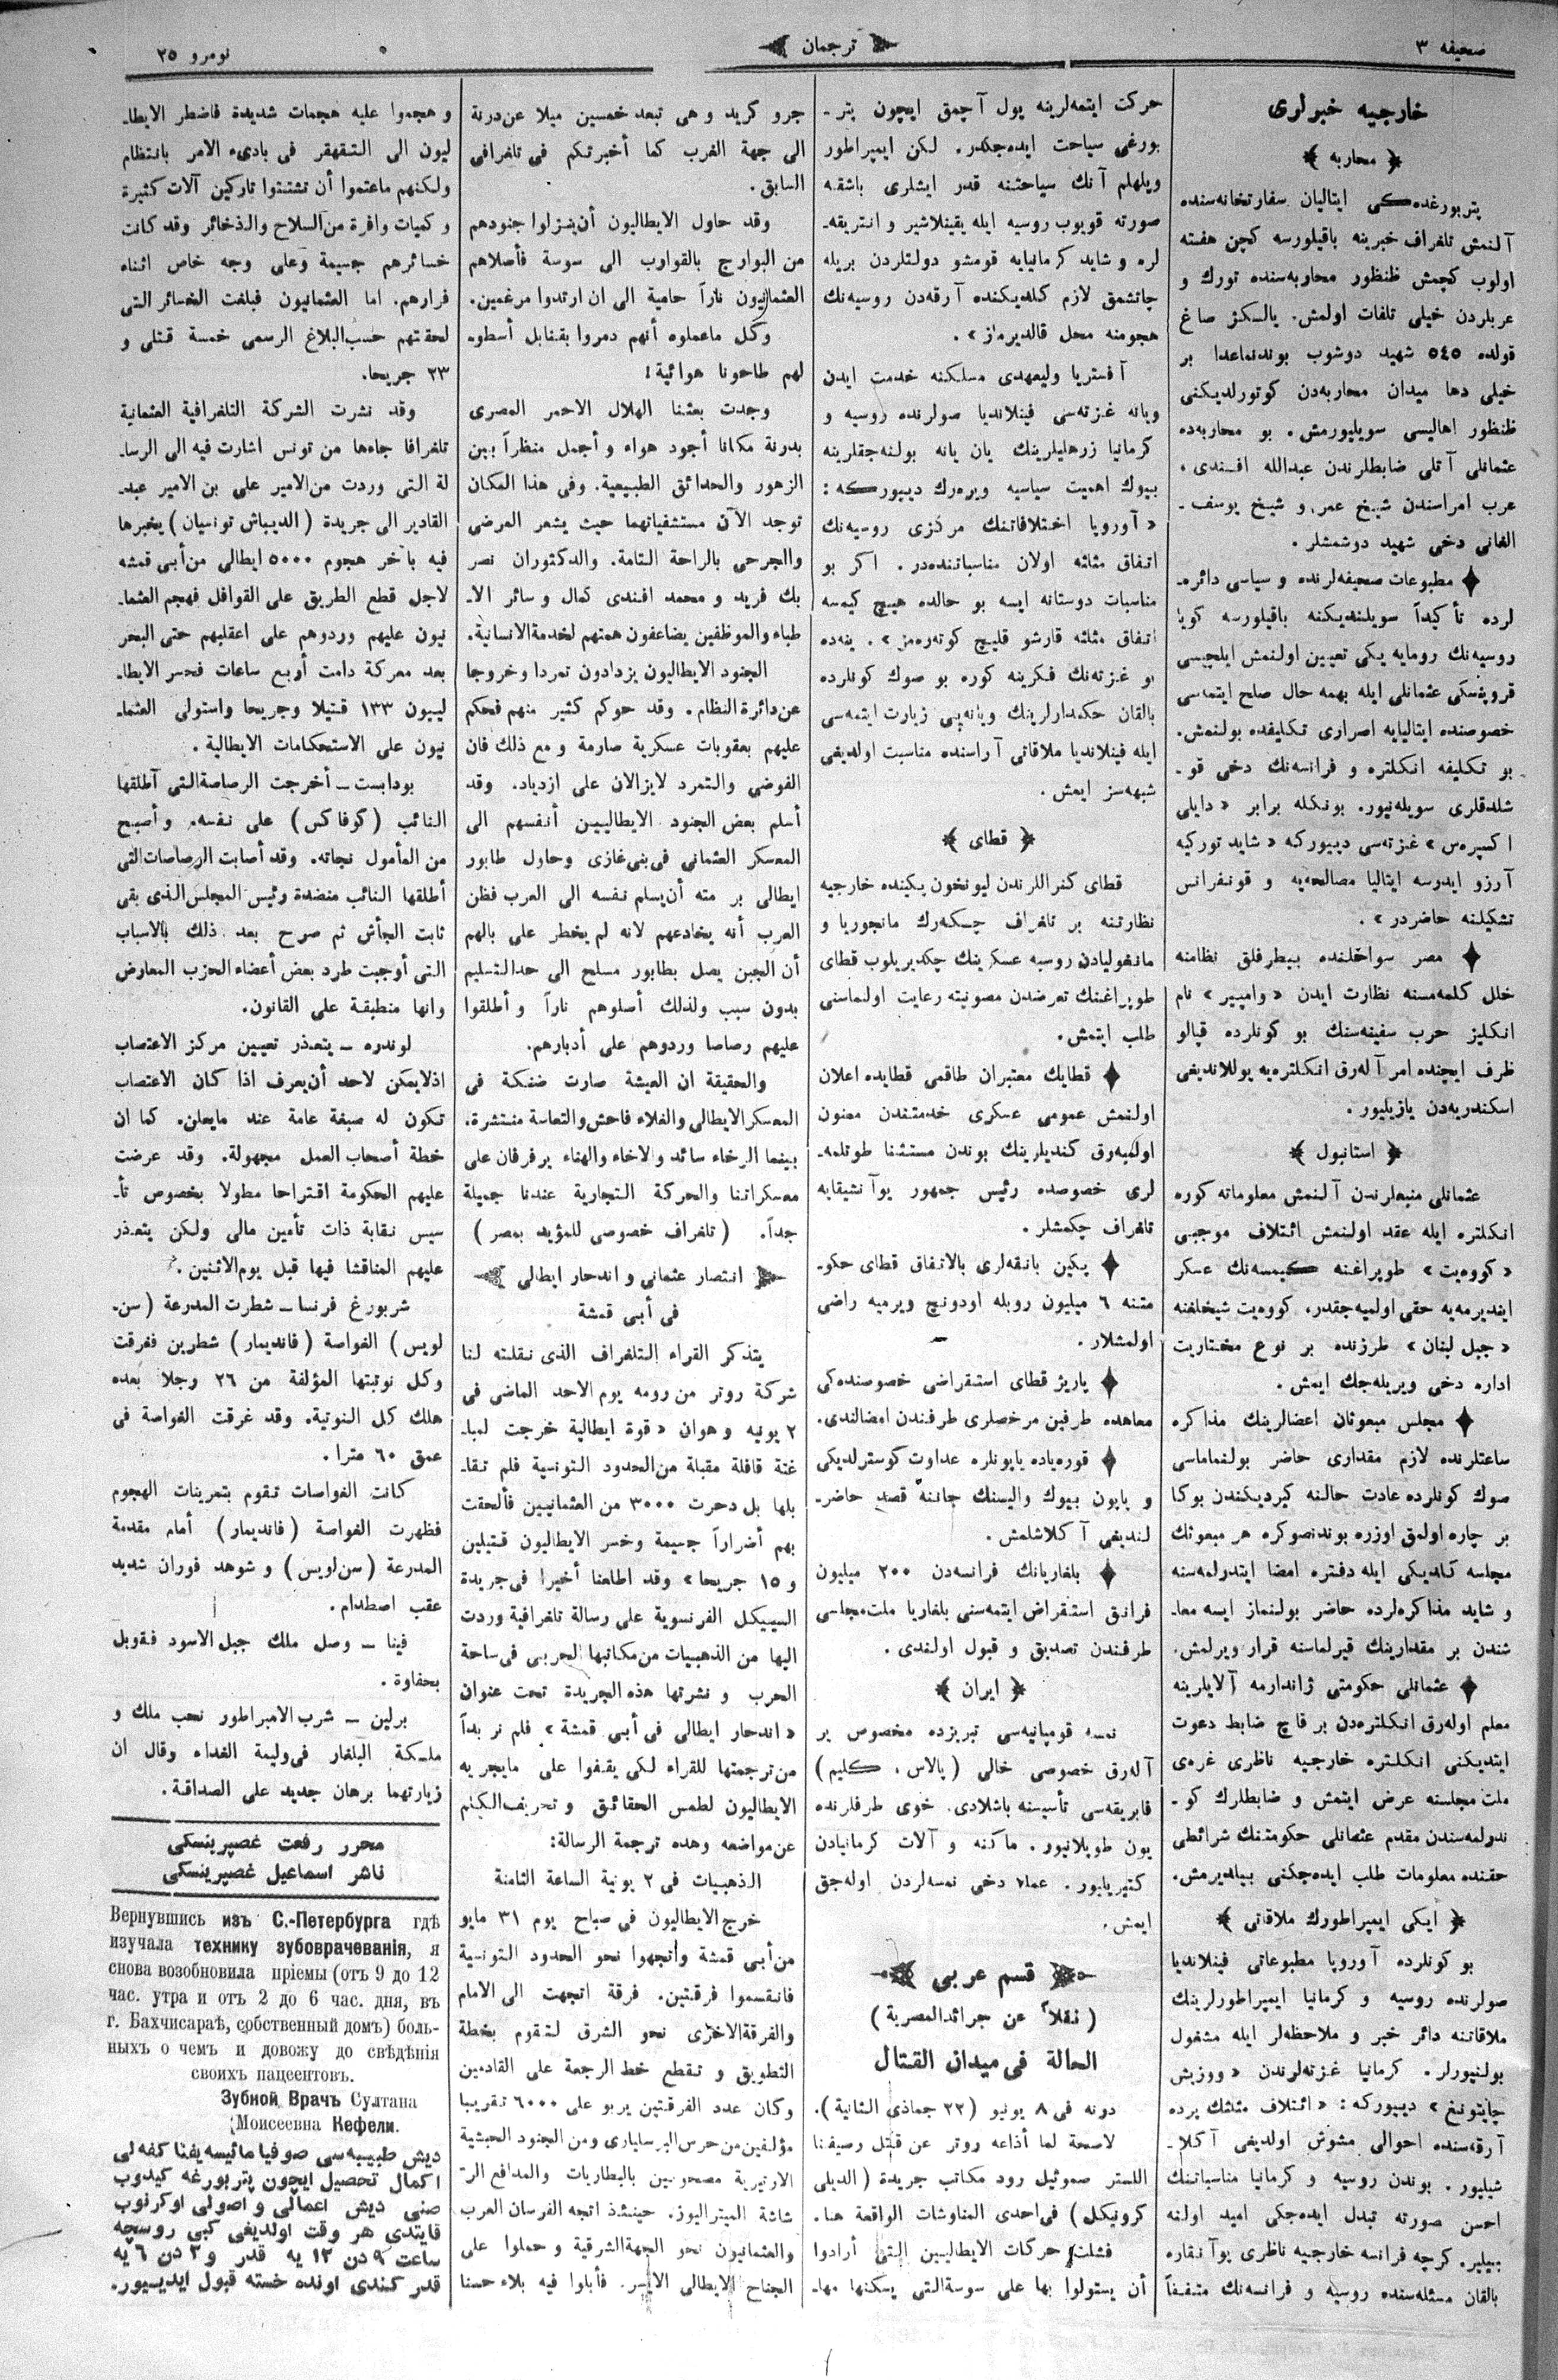 صحیفه ٣
ترجمان
نومرو ٢٥
خارجیه خبرلری
﴿ محاربه ﴾
پتربورغده‌کی ایتالیان سفارتخانه‌سنده
آلنمش تلغراف خبرینه باقیلورسه کچن هفته
اولوب کچمش ظنظور محاربه‌سنده تورك و
عربلردن خیلی تلفات اولمش. یالـکز صاغ
قولده ٥٤٥ شهید دوشوب بوندنماعدا بر
خیلی دها میدان محاربه‌دن کوتورلدیکنی
ظنظور اهالیسی سویلیورمش. بو محاربه‌ده
عثمانلی آتلی ضابطلرندن عبدالله افـندی،
عرب امراسندن شیخ عمر، و شیخ یوسف ـ
الفانی دخی شهید دوشمشلر.
مطبوعات صحیفه‌لرنده و سیاسی دائره‌ـ
لرده تأکیداً سویلندیکنه باقیلورسه کویا
روسیه‌نك رومایه یکی تعیین اولنمش ایلچیسی
قروپنسکی عثمانلی ایله بهمه حال صلح ایتمه‌سی
خصوصنده ایتالیایه اصراری تکلیفده بولنمش.
بو تکلیفه انکلتره و فرانسه‌نك دخی قو ـ
شلدقلری سویله‌نیور. بونکله برابر « دایلی
اکسپره‌س » غزته‌سی دیبیورکه « شاید تورکیه
آرزو ایدرسه ایتالیا مصالحه‌یه و قونفرانس
تشکیلنه حاضردر ».
مصر سواحلنده بیطرفلق نظامنه
خلل کلمه‌مسنه نظارت ایدن « وامپیر » نام
انکلیز حرب سفینه‌سنك بو کونلرده قپالو
ظرف ایچنده امر آله‌رق انکلتره‌یه یوللاندیغی
اسکندریه‌دن یازیلیور.
﴿ استانبول ﴾
عثمانلی منبعلرندن آلنمش معلوماته کوره
انکلتره ایله عقد اولنمش ائتلاف موجبی
« کووه‌یت » طوپراغنه کیمسه‌نك عسکر
ایندیرمه‌یه حقی اولمیه‌جقدر، کووه‌یت شیخلغنه
« جبل لبنان » طرزنده بر نوع مختاریت
اداره دخی ویریله‌جك ایمش.
مجلس مبعوثان اعضالرینك مذاکره
ساعتلرنده لازم مقداری حاضر بولنماماسی
صوك کونلرده عادت حالنه کیردیکندن بوکا
بر چاره اولمق اوزره بوندنصوکره هر مبعوثك
مجلسه کلدیکی ایله دفتره امضا ایتدرلمه‌سنه
و شاید مذاکره‌لرده حاضر بولنماز ایسه معا ـ
شندن بر مقدارینك قیرلماسنه قرار ویرلمش.
عثمانلی حکومتی ژاندارمه آلایلرینه
معلم اوله‌رق انکلتره‌دن بر قاچ ضابط دعوت
ایتدیکنی انکلتره خارجیه ناظری غره‌ی
ملت مجلسنه عرض ایتمش و ضابطلرك کو ـ
ندرلمه‌سندن مقدم عثمانلی حکومتنك شرائطی
حقنده معلومات طلب ایده‌جکنی بیلدیرمش.
﴿ ایکی ایمپراطورك ملاقاتی ﴾
بو کونلرده آوروپا مطبوعاتی فینلاندیا
صولرنده روسیه و کرمانیا ایمپراطورلرینك
ملاقاتنه دائر خبر و ملاحظه‌لر ایله مشغول
بولنیورلر. کرمانیا غزته‌لرندن « ووزیش
چایتونغ » دیبیورکه : « ائتلاف مثلثك پرده
آرقه‌سنده احوالی مشوش اولدیغی آکلا ـ
شیلیور. بوندن روسیه و کرمانیا مناسباتنك
احسن صورته تبدل ایده‌جکی امید اولنه
بیلیر. کرچه فرانسه خارجیه ناظری پوآنقاره
بالقان مسئله‌سنده روسیه و فرانسه‌نك متفـقاً
حرکت ایتمه‌لرینه یول آچمق ایچون پتر ـ
بورغی سیاحت ایده‌جکدر. لـکن ایمپراطور
ویلهلم آنك سیاحتنه قدر ایشلری باشقـه
صورته قویوب روسیه ایله یقینلاشیر و انتریقه‌ـ
لره و شاید کرمانیایه قومشو دولتلردن بریله
چاتشمق لازم کلدیکنده آرقه‌دن روسیه‌نك
هجومنه محل قالدیرماز ».
آفستریا ولیعهدی مسلکنه خدمت ایدن
ویانه غزته‌سی فینلاندیا صولرنده روسیه و
کرمانیا زرهلیلرینك یان یانه بولنه‌جقلرینه
بیوك اهمیت سیاسیه ویره‌رك دیبیورکه :
« آوروپا اختلافاتنك مرکزی روسیه‌نك
اتفاق مثلثه اولان مناسباتنده‌در. اکر بو
مناسبات دوستانه ایسه بو حالده هیچ کیمسه
اتفاق مثلثه قارشو قلیچ کوته‌ره‌مز ». ینه‌ده
بو غزته‌نك فکرینه کوره بو صوك کونلرده
بالقان حکمدارلرینك ویانه‌یی زیارت ایتمه‌سی
ایله فینلاندیا ملاقاتی آراسنده مناسبت اولدیغی
شبهه‌سز ایمش.
﴿ قطای ﴾
قطای کنراللرندن لیونخون پکینده خارجیه
نظارتنه بر تلغراف چـکه‌رك مانجوریا و
مانغولیادن روسیه عسکرینك چکدیریلوب قطای
طوپراغنك تعرضدن مصونیته رعایت اولنماسنی
طلب ایتمش.
قطایك معتبران طاقمی قطایده اعلان
اولنمش عمومی عسکری خدمتندن ممنون
اولمیه‌رق کندیلرینك بوندن مستثنا طوتلمه‌ـ
لری خصوصده رئیس جمهور یوآنشیقایه
تلغراف چکمشلر.
پکین بانقه‌لری بالاتفاق قطای حکو ـ
متنه ٦ میلیون روبله اودونچ ویرمیه راضی
اولمشلار.
پاریژ قطای استقراضی خصوصنده‌کی
معاهده طرفین مرخصلری طرفندن امضالندی.
قوره‌یاده یاپونلره عداوت کوسترلدیکی
و یاپون بیوك والیسنك جاننه قصد حاضر ـ
لندیغی آکلاشلمش.
بلغاریانك فرانسه‌دن ٢٠٠ میلیون
فرانق استقراض ایتمه‌سنی بلغاریا ملت‌مجلسی
طرفندن تصدیق و قبول اولندی.
﴿ ایران ﴾
نمسه قومپانیه‌سی تبریزده مخصوص یر
آله‌رق خصوصی خالی (پالاس، کلیم)
فابریقه‌سی تأسیسنه باشلادی. خوی طرفلرنده
یون طوپلانیور. ماکنه و آلات کرمانیادن
کتیریلیور. عمله دخی نمسه‌لردن اوله‌جق
ایمش.
قسم عربی
(نقلاً عن جرائدالمصریة)
الحالة فی میدان القتال
درنه فی ٨ یونیو (٢٢ جماذی الثانیة).
لاصحة لما أذاعه روتر عن قتل رصیفنا
اللستر صموئیل رود مکاتب جریدة (الدیلی
کرونیکل) فی‌احدی المناوشات الواقعة هنا.
فشلت حرکات الایطالیین التی أرادوا
أن یستولوا بها علی سوسةالتی یسکنها مها ـ
جرو کرید و هی تبعد خمسین میلا عن‌درنة
الی جهة الغرب کما أخبرتکم فی تلغرافی
السابق.
وقد حاول الایطالیون أن‌ینزلوا جنودهم
من البوارج بالقوارب الی سوسة فأصلاهم
العثمانیون ناراً حامیة الی ان ارتدوا مرغمین.
وکل ماعملوه أنهم دمروا بقنابل أسطو ـ
لهم طاحونا هوائیة!
وجدت بعثنا الهلال الاحمر المصری
بدرنة مکانا أجود هواء و أجمل منظراً بین
الزهور والحدائق الطبیعیة. وفی هذا المکان
توجد الآن مستشفیاتهما حیث یشعر المرضی
والجرحی بالراحة التامة. والدکتوران نصر
بك فرید و محمد افندی کمال و سائر الا ـ
طباء والموظفین یضاعفون همتهم لخدمة‌الانسانیة.
الجنود الایطالیون یزدادون تمردا وخروجا
عن‌دائرة النظام. وقد حوکم کثیر منهم فحکم
علیهم بعقوبات عسکریة صارمة و مع ذلك فان
الفوضی والتمرد لایزالان علی ازدیاد. وقد
أسلم بعض الجنود الایطالیـین أنفسهم الی
المعسکر العثمانی فی‌بنی‌غازی وحاول طابور
ایطالی بر مته أن‌یسلم نفسه الی العرب فظن
العرب أنه یخادعهم لانه لم یخطر علی بالهم
أن الجبن یصل بطابور مسلح الی حدالتسلیم
بدون سبب ولذلك أصلوهم ناراً و أطلقوا
علیهم رصاصا وردوهم علی أدبارهم.
والحقیقة ان العیشة صارت ضنکة فی
المعسکرالایطالی والغلاء فاحش‌والتعاسة منتشرة.
بینما الرخاء سائد والاخاء والهناء یرفرفان علی
معسکراتنا والحرکة التجاریة عندنا جمیلة
جداً. (تلغراف خصوصی للمؤید بمصر)
انتصار عثمانی و اندحار ایطالی
فی أبی قمشة
یتذکر القراء التلغراف الذی نقلته لنا
شرکة روتر من رومه یوم الاحد الماضی فی
٢ یونیه و هوان « قوة ایطالیة خرجت لمبا ـ
غتة قافلة مقبلة من‌الحدود التونسیة فلم تقا ـ
بلها بل دحرت ٣٠٠٠ من العثمانیین فألحقت
بهم أضراراً جسیمة وخسر الایطالیون قتیلین
و ١٥ جریحا » وقد اطلعنا أخیرا فی‌جریدة
السییکل الفرنسویة علی رسالة تلغرافیة وردت
الیها من الذهیبات من‌مکاتبها الحربی فی‌ساحة
الحرب و نشرتها هذه الجریدة تحت عنوان
« اندحار ایطالی فی أبی قمشة » فلم نر بداً
من‌ترجمتها للقراء لکی یقفوا علی مایجریه
الایطالیون لطمس الحقائق و تحریف‌الکلم
عن‌مواضعه وهده ترجمة الرسالة:
الذهیبات فی ٢ یونیة الساعة الثامنة
خرج الایطالیون فی صباح یوم ٣١ مایو
من‌أبی قمشة واتجهوا نحو الحدود التونسیة
فانقسموا فرقتین. فرقة اتجهت الی الامام
والفرقةالاخری نحو الشرق لتقوم بخطة
التطویق و تقطع خط الرجعة علی القادمین
وکان عدد الفرقتین یربو علی ٦٠٠٠ تقریبا
مؤلفین‌من حرس البرسلیاری ومن الجنود الحبشیة
الارتیریة مصحوبین بالبطاریات والمدافع الر ـ
شاشة المیترالیوز. حینئذ اتجه الفرسان العرب
والعثمانیون نحو الجهةالشرقیة و حملوا علی
الجناح الایطالی الایسر. فأبلوا فیه بلاء حسنا
و هجموا علیه هجمات شدیدة فاضطر الایطا ـ
لیون الی التقهقر فی بادیء الامر بانتظام
ولکنهم ماعتموا أن تشتتوا تارکین آلات کثیرة
و کمیات وافرة من‌السلاح والذخائر وقد کانت
خسائرهم جسیمة وعلی وجه خاص اثناء
فرارهم. اما العثمانیون فبلغت الخسائر التی
لحقتهم حسب‌البلاغ الرسمی خمسة قتلی و
٢٣ جریحا.
وقد نشرت الشرکة التلغرافیة العثمانیة
تلغرافا جاءها من تونس اشارت فیه الی الرسا ـ
لة التی وردت من‌الامیر علی بن الامیر عبد ـ
القادیر الی جریدة (الدیباش تونسیان) یخبرها
فیه بآخر هجوم ٥٠٠٠ ایطالی من‌أبی قمشه
لاجل قطع الطریق علی القوافل فهجم العثما ـ
نیون علیهم وردوهم علی اعقلبهم حتی البحر
بعد معرکة دامت أربع ساعات فخسر الایطا ـ
لییون ١٣٣ قتیلا وجریحا واستولی العثما ـ
نیون علی الاستحکامات الایطالیة.
بودابست ـ أخرجت الرصاصةالتی آطلقها
النائب (کوفاکس) علی نفسه. و أصبح
من المأمول نجاته. وقد أصابت الرصاصات‌التی
أطلقها النائب منضدة رئیس المجلس‌الذی بقی
ثابت الجأش ثم صرح بعد ذلك بالاسباب
التی أوجبت طرد بعض أعضاء الحزب المعارض
وانها منطبقة علی القانون.
لوندره ـ یتعذر تعیین مرکز الاعتصاب
اذلایمکن لاحد أن‌یعرف اذا کان الاعتصاب
تکون له صبغة عامة عند مایعلن. کما ان
خطة أصحاب العمل مجهولة. وقد عرضت
علیهم الحکومة اقتراحا مطولا بخصوص تأ ـ
سیس نقابة ذات تأمین مالی ولکن یتعذر
علیهم المناقشا فیها قبل یوم‌الاثنین.
شربورغ فرنسا ـ شطرت المدرعة (سن ـ
لویس) الغواصة (فاندیمار) شطرین ففرقت
وکل نوتیتها المؤلفة من ٢٦ رجلا بعده
هلك کل النوتیة. وقد غرقت الغواصة فی
عمق ٦٠ مترا.
کانت الغواصات تقوم بتمرینات الهجوم
فظهرت الغواصة (فاندیمار) أمام مقدمة
المدرعة (سن‌لویس) و شوهد فوران شدید
عقب اصطدام.
فینا ـ وصل ملك جبل الاسود فقوبل
بحفاوة.
برلین ـ شرب الامبراطور نخب ملك و
ملـکة البلغار فی‌ولیمة الغداء وقال ان
زیارتهما برهان جدید علی الصداقة.
محرر رفعت غصپرینسکی
ناشر اسماعیل غصپرینسکی
Вернувшись изъ С.-Петербурга гдѣ
изучала технику зубоврачеванія, я
снова возобновила пріемы (отъ 9 до 12
час. утра и отъ 2 до 6 час. дня, въ
г. Бахчисараѣ, собственный домъ) боль-
ныхъ о чемъ и довожу до свѣдѣнія
своихъ пацеентовъ.
Зубной Врачъ Султана
Моисеевна Кефели.
دیش طبیبه‌سی صوفیا مائیسه‌یفنا کفه‌لی
اکمال تحصیل ایچون پتربورغه کیدوب
صنی دیش اعمالی و اصولی اوکرنوب
قایتدی هر وقت اولدیغی کبی روسچه
ساعت ٩ دن ١٢ یه قدر و ٢ دن ٦ یه
قدر کندی اونده خسته قبول ایدییور.